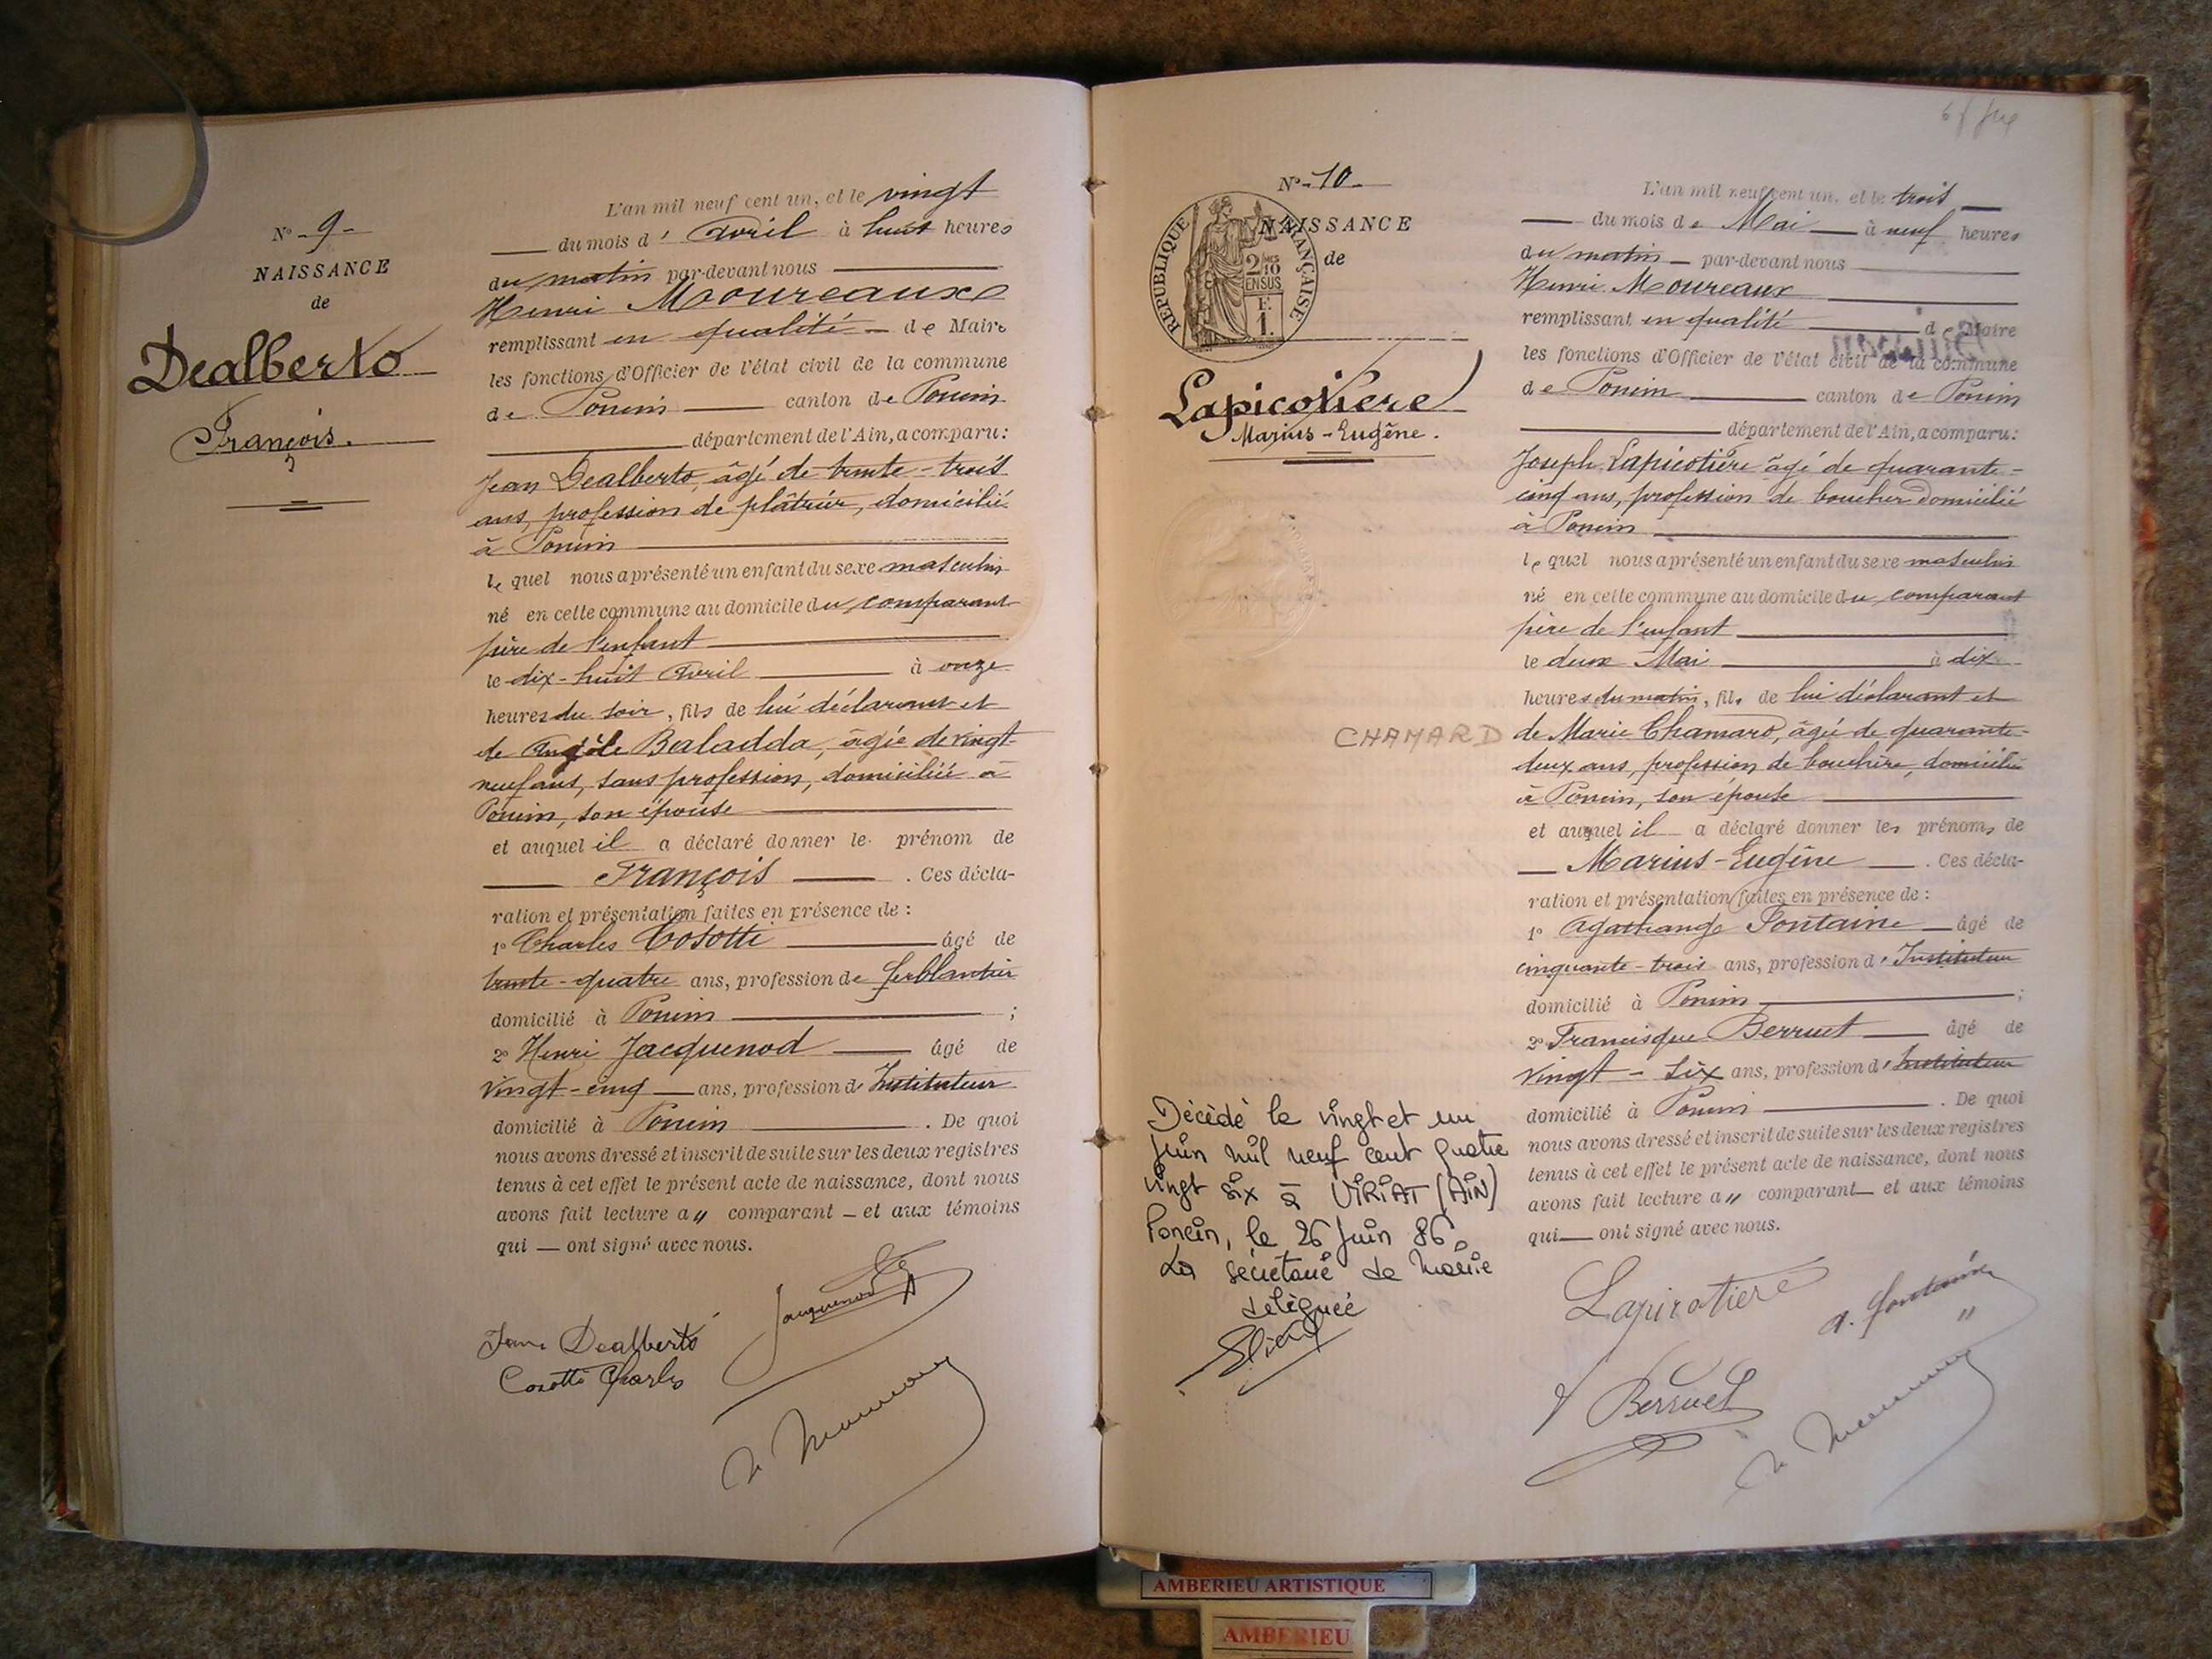 N° - 9 -
NAISSANCE
de
Dealberto
François.
L'an mil neuf cent un, et le vingt
du mois d' Avril à huit heures
du matin par-devant nous
Henri Moureaux
remplissant en qualité de Maire
les fonctions d'Officier de l'état civil de la commune
de Poncin canton de Poncin
département de l'Ain, a comparu :
Jean Dealberto, âgé de trente-trois
ans, profession de plâtrier, domicilié
à Poncin
le quel nous a présenté un enfant du sexe masculin
né en cette commune au domicile du comparant
père de l'enfant
le dix-huit Avril à onze
heures du soir, fils de lui déclarant et
de Angèle Baladda, âgée de vingt-
neuf ans, sans profession, domiciliée à
Poncin, son épouse
et auquel il a déclaré donner le prénom de
François . Ces décla-
ration et présentation faites en présence de :
1° Charles Cosotti âgé de
trente-quatre ans, profession de ferblantier
domicilié à Poncin ;
2° Henri Jacquenod âgé de
vingt-cinq ans, profession d' Instituteur
domicilié à Poncin . De quoi
nous avons dressé et inscrit de suite sur les deux registres
tenus à cet effet le présent acte de naissance, dont nous
avons fait lecture a" comparant et aux témoins
qui — ont signé avec nous.
Jean Dealberto
Jacquenod
Cosotti Charles
N° - 10 -
NAISSANCE
de
REPUBLIQUE FRANÇAISE
2/10
EN SUS
F.
1.
Lapicotiere
Marius - Eugène.
L'an mil neuf cent un, et le trois
du mois de Mai à neuf heures
du matin par-devant nous
Henri Moureaux
remplissant en qualité de Maire
les fonctions d'Officier de l'état civil de la commune
de Poncin canton de Poncin
département de l'Ain, a comparu :
Joseph Lapicotière âgé de quarante-
cinq ans, profession de boucher domicilié
à Poncin
le quel nous a présenté un enfant du sexe masculin
né en cette commune au domicile du comparant
père de l'enfant
le deux Mai à dix
heures du matin, fils de lui déclarant et
CHAMARD
de Marie Chamard, âgée de quarante-
deux ans, profession de bouchère, domiciliée
à Poncin, son épouse
et auquel il a déclaré donner les prénoms de
Marius-Eugène . Ces décla-
ration et présentation faites en présence de :
1° Agathange Fontaine âgé de
cinquante-trois ans, profession d' Instituteur
domicilié à Poncin ;
2° Francisque Berruet âgé de
vingt - six ans, profession d' Instituteur
domicilié à Poncin . De quoi
nous avons dressé et inscrit de suite sur les deux registres
tenus à cet effet le présent acte de naissance, dont nous
avons fait lecture a" comparant et aux témoins
qui — ont signé avec nous.
Décédé le vingt et un
Juin mil neuf cent quatre
vingt six à VIRIAT (AIN)
Poncin, le 26 Juin 86.
La secrétaire de Mairie
déléguée
Lapicotiere
A. Fontaine
Berruet
AMBERIEU ARTISTIQUE
AMBERIEU